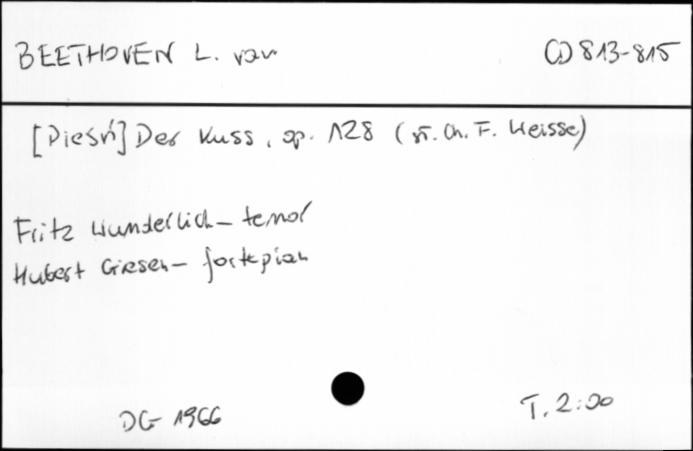 BEETHOVEN L. van CD 813-815
[Pieśń] Der Kuss, op. 128 (sł. Ch. F. Weisse)
Fritz Wunderlich - tenor
Hubert Giesen - fortepian
DG 1966 T. 2:00